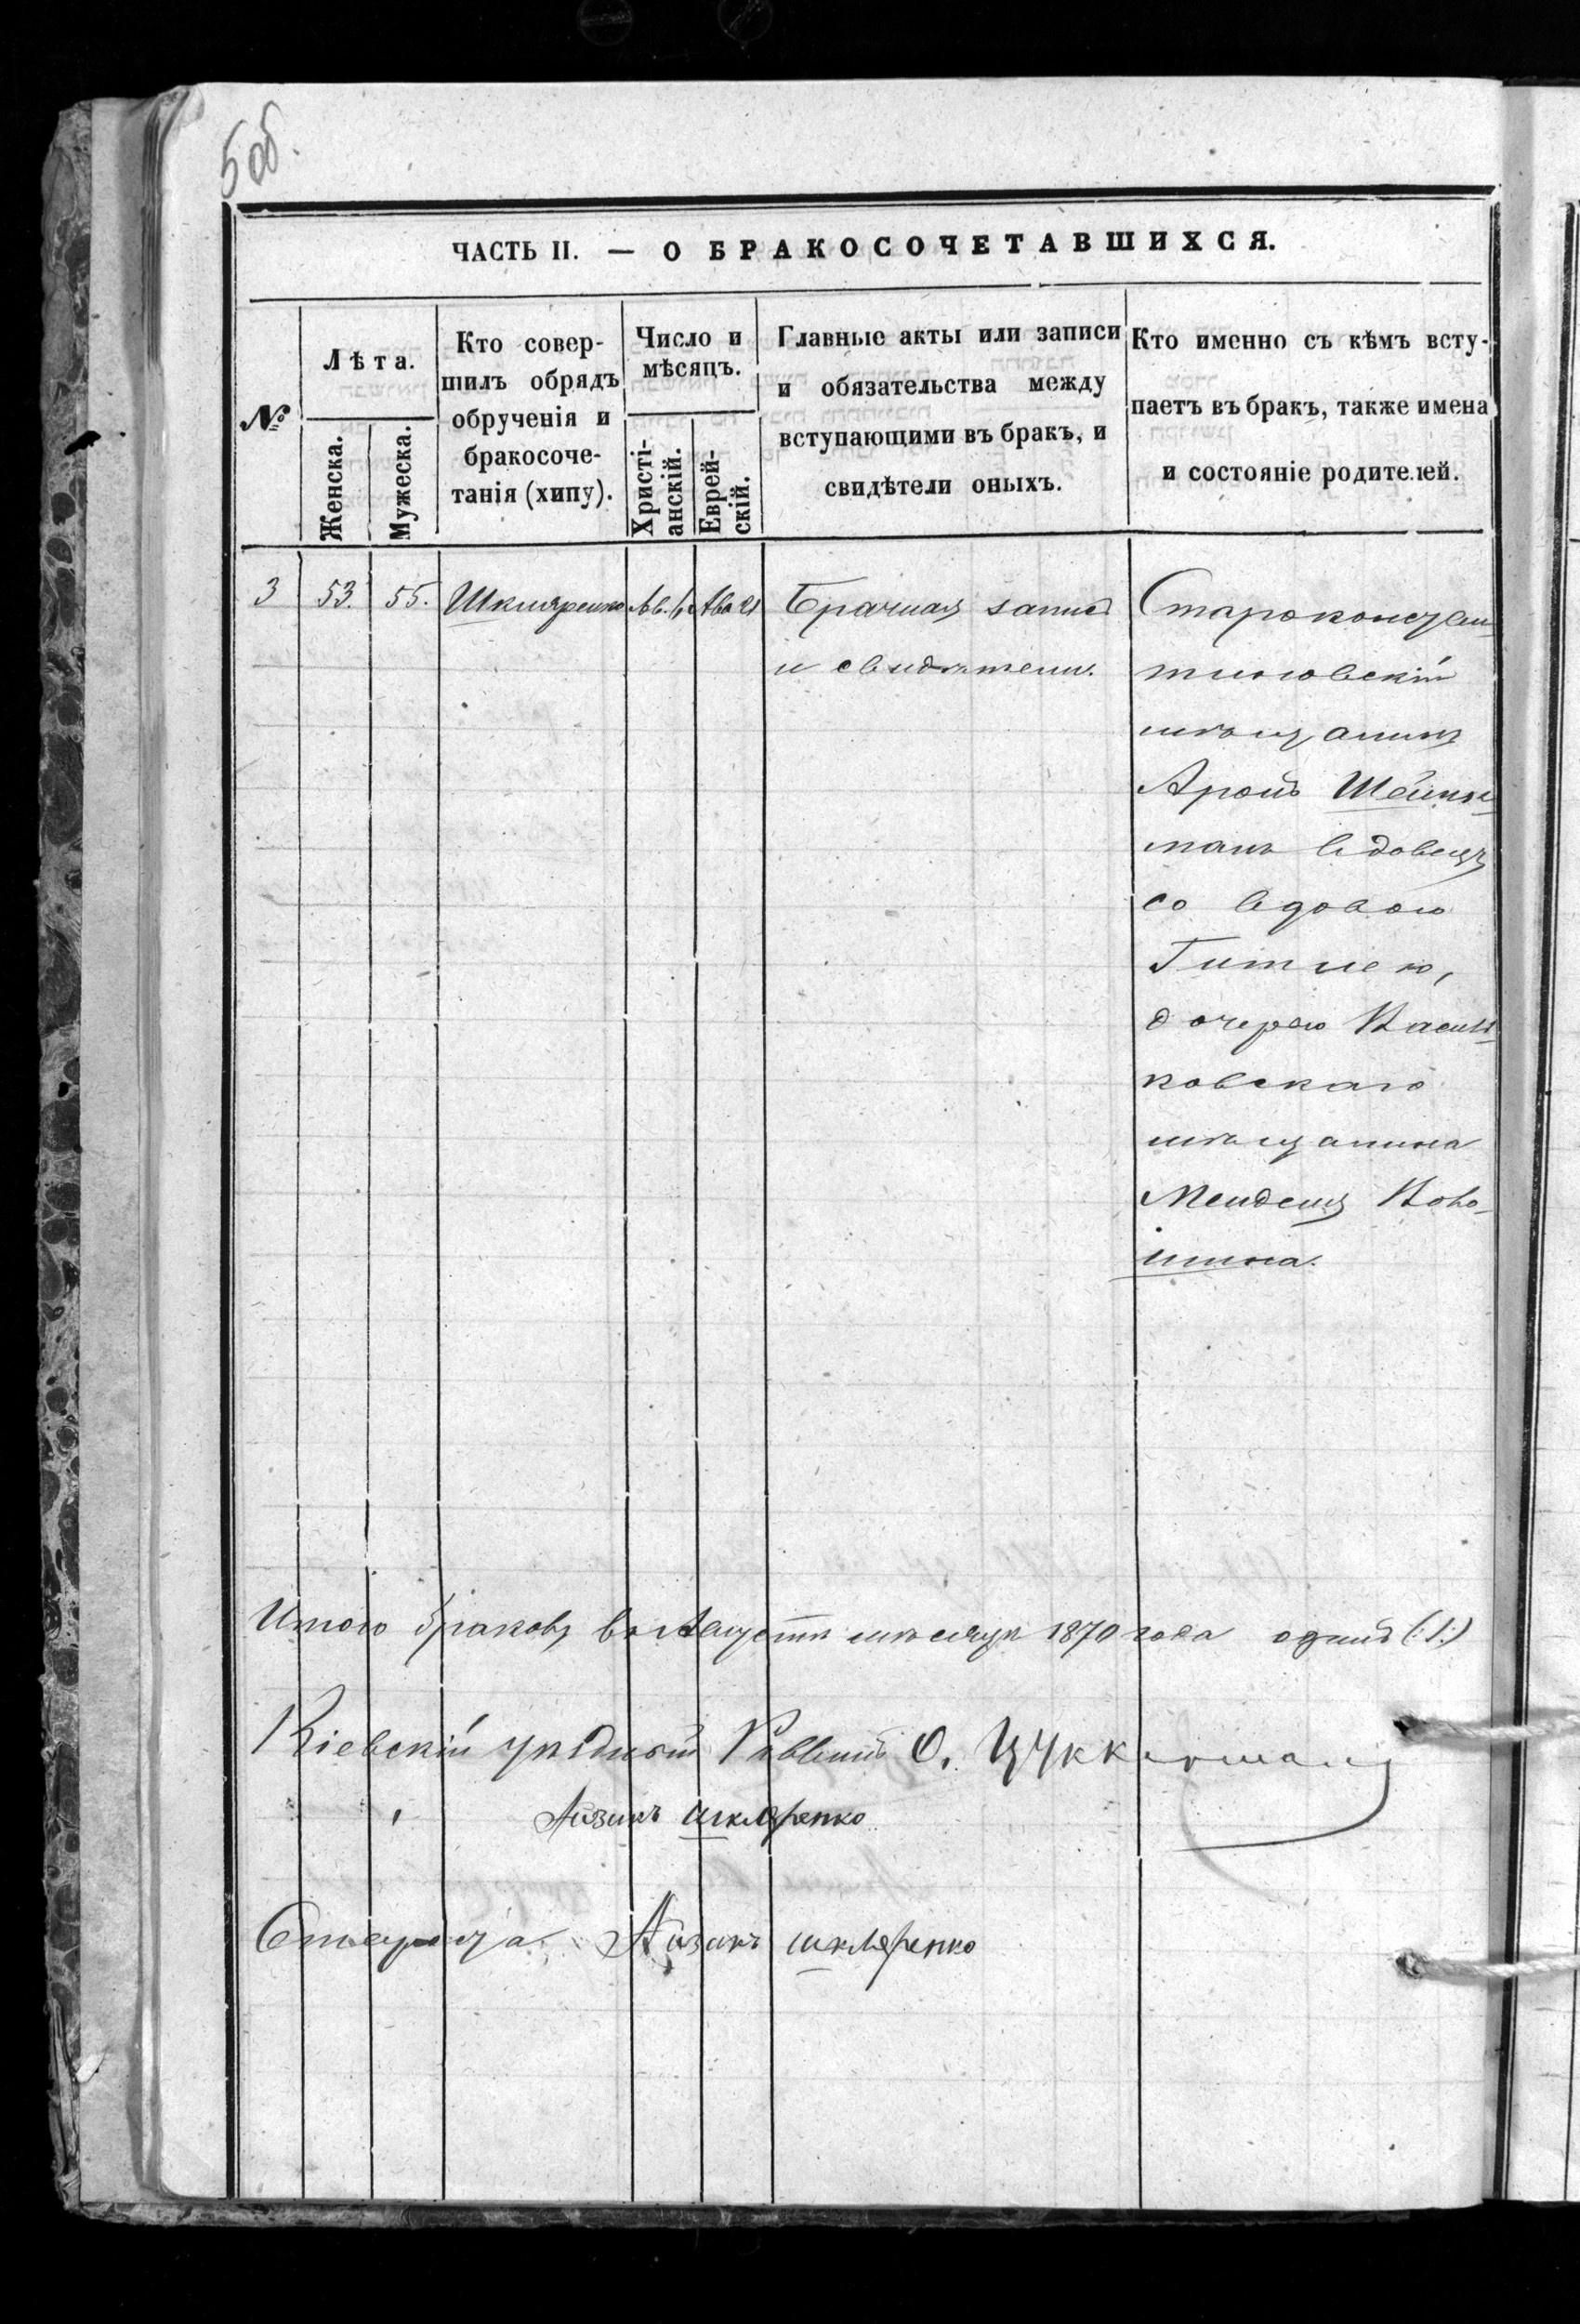 5 об.
ЧАСТЬ II. — О БРАКОСОЧЕТАВШИХСЯ.
№
Лѣта.
Женска.
Мужеска.
Кто совер-
шилъ обрядъ
обрученія и
бракосоче-
танія (хипу).
Число и
мѣсяцъ.
Христі-
анскій.
Еврей-
скій.
Главные акты или записи
и обязательства между
вступающими въ бракъ, и
свидѣтели оныхъ.
Кто именно съ кѣмъ всту-
паетъ въ бракъ, также имена
и состояніе родителей.
3 53. 55. Шкляренко Ав. Ава Брачная запись
и свидѣтели.
Староконстан-
тиновскій
мѣщанинъ
Аронъ
манъ вдовецъ
со вдовою
Гитлею,
дочерью Василь-
ковскаго
мѣщанина
Менделя
шина.
Итого браковъ въ Августѣ мѣсяцѣ 1870 года одинъ (:1:)
Кіевскій уѣздный Раввинъ О. Цуккерманъ
Айзикъ Шкляренко
Староста Айзикъ Шкляренко